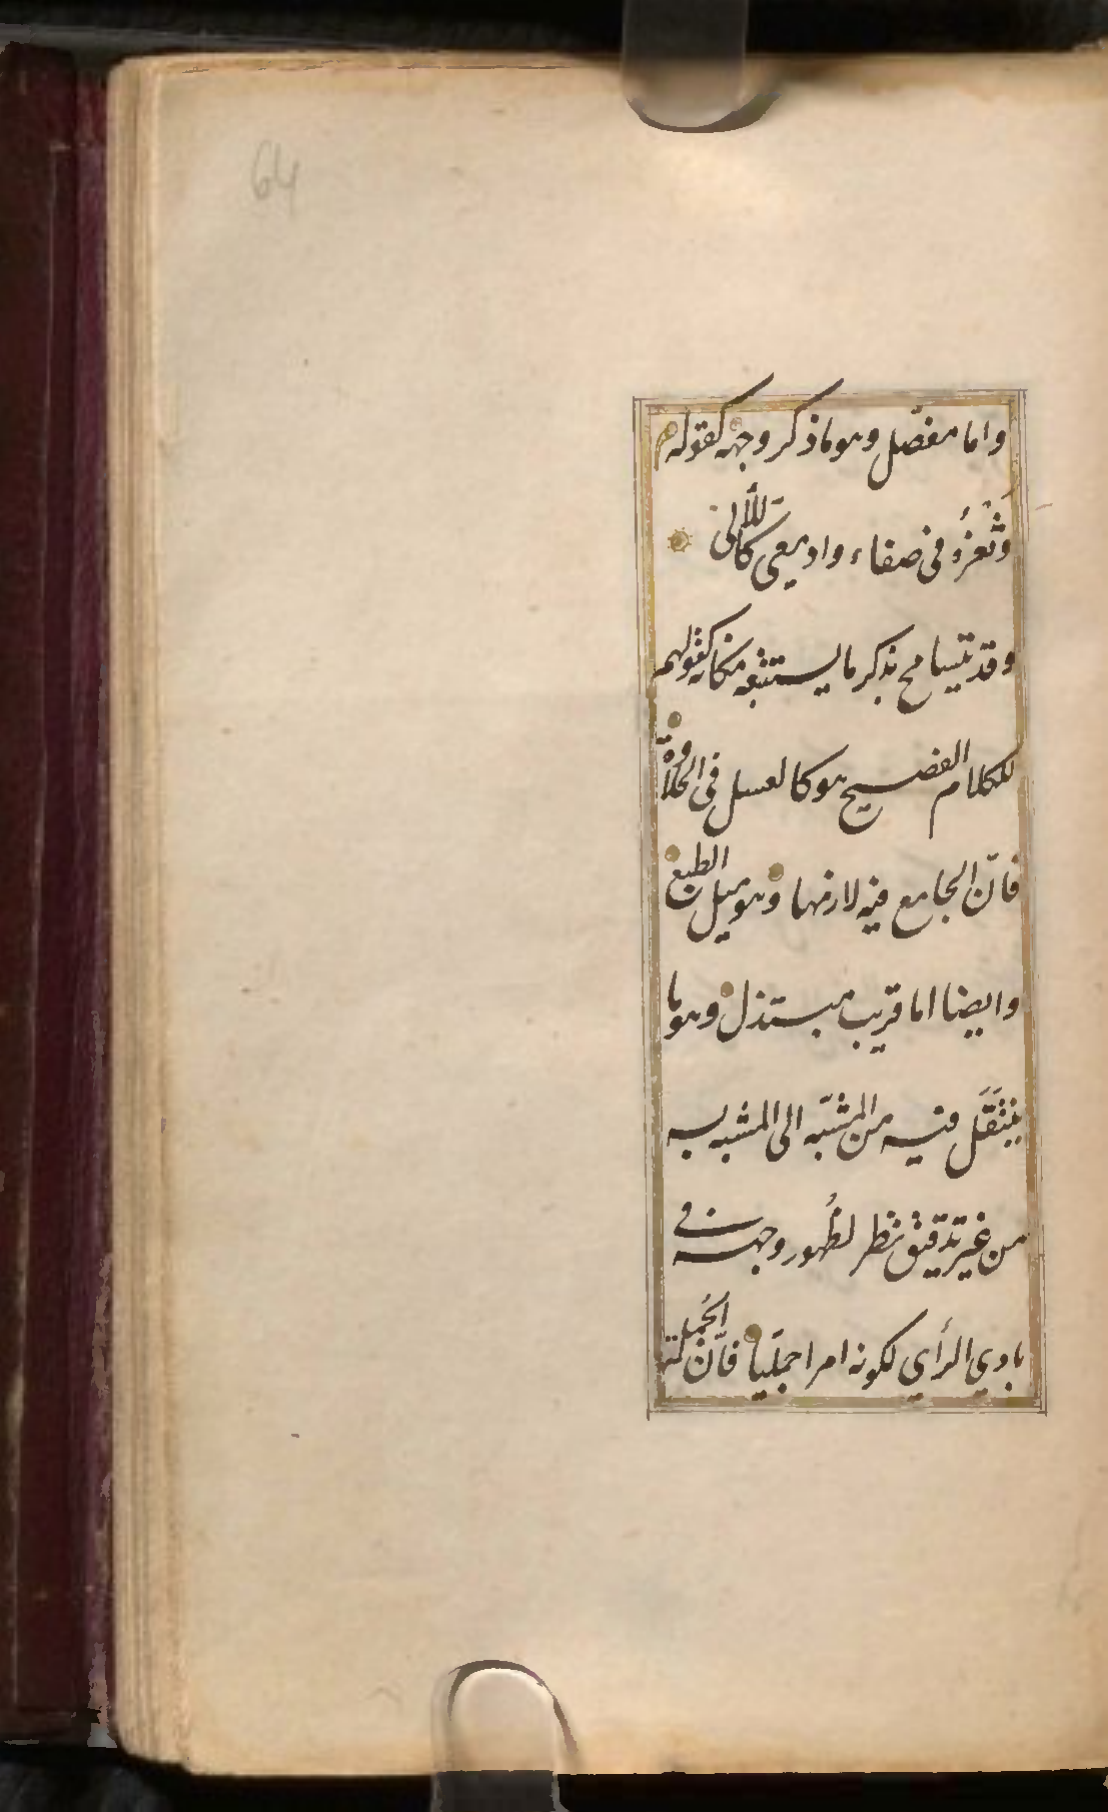 64
واما مفصّل وهو ما ذكر وجهه كقوله
وثغرُه في صفاء وادمعي كاللآلي
وقد يتسامح بذكر ما يستتبعه مكانه كقولهم
للكلام الفصيح هو كالعسل في الحلاوة
فانّ الجامع فيه لازمها وهو ميل الطبع
وايضا اما قريب مبتذل وهو ما
ينتقَل فيه من المشبّه الى المشبه به
من غير تدقيق نظر لظُهور وجهه في
بادي الرأي لكونه امرا جمليّا فانّ الجُملة